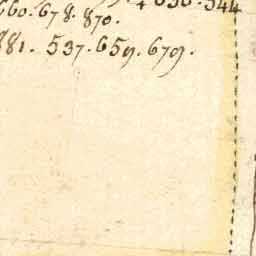 544
660. 678. 870.
881. 537. 659. 679.